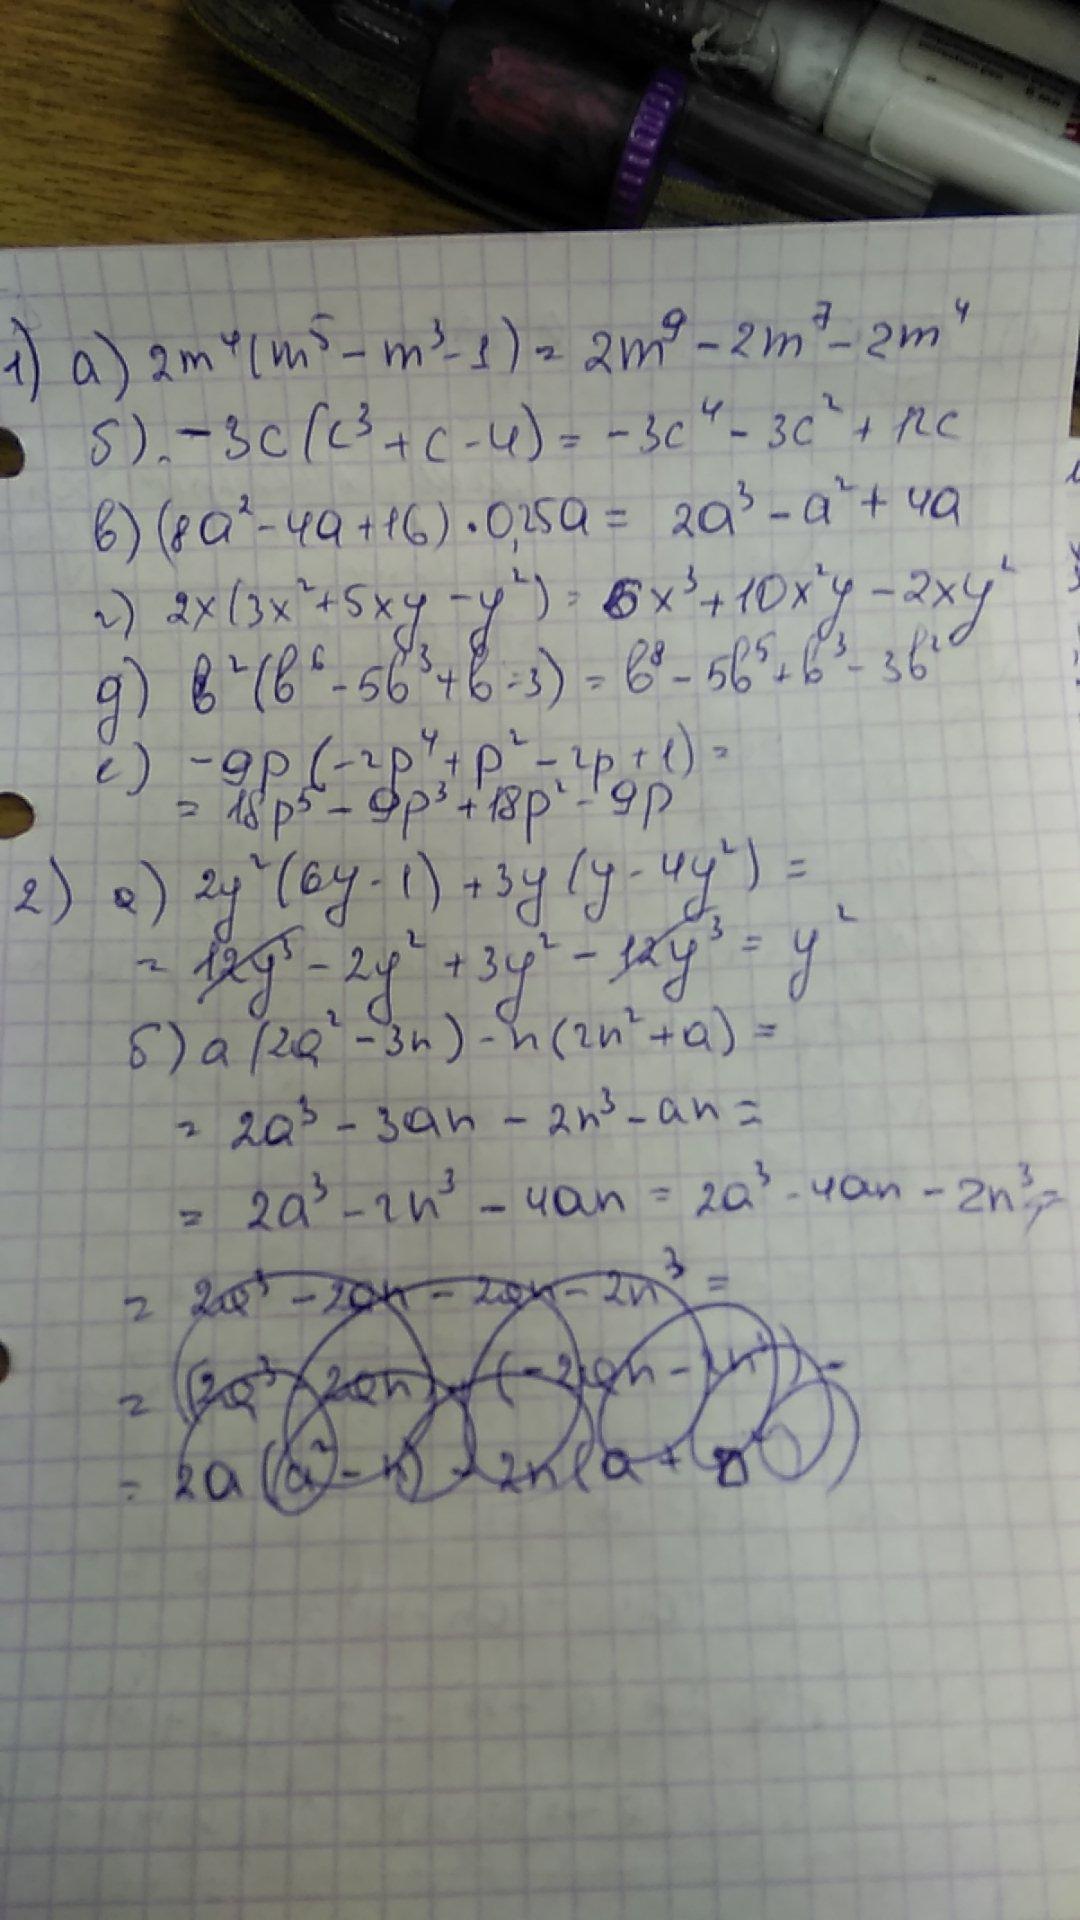 1) а) 2m⁴(m⁵ - m³ - 1) = 2m⁹ - 2m⁷ - 2m⁴
б). -3c(c³ + c - 4) = -3c⁴ - 3c² + 12c
в) (8a² - 4a + 16) · 0,25a = 2a³ - a² + 4a
г) 2x(3x² + 5xy - y²) = 6x³ + 10x²y - 2xy²
д) b²(b⁶ - 5b³ + b - 3) = b⁸ - 5b⁵ + b³ - 3b²
е) -9p(-2p⁴ + p² - 2p + 1) =
= 18p⁵ - 9p³ + 18p² - 9p
2) а) 2y²(6y - 1) + 3y(y - 4y²) =
= 12y³ - 2y² + 3y² - 12y³ = y²
б) a(2a² - 3n) - n(2n² + a) =
= 2a³ - 3an - 2n³ - an =
= 2a³ - 2n³ - 4an = 2a³ - 4an - 2n³ =
= 2a³ - 2an - 2an - 2n³ =
= (2a³ - 2an) + (-2an - 2n³) =
= 2a(a² - n) - 2n(a +